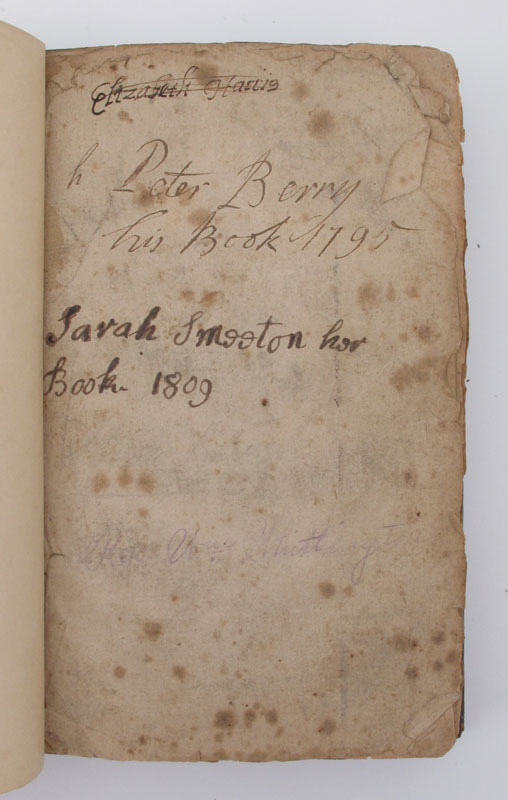 Elizabeth Harris
h Peter Berry
his Book 1795
Sarah Smeeton her
Book 1809
Wm Whittington